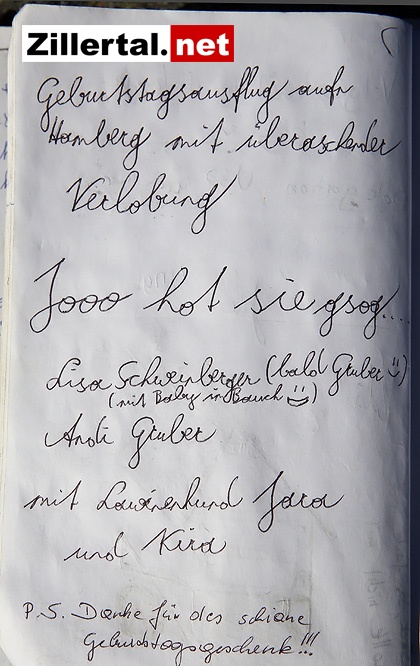 Zillertal.net
Geburtstagsausflug aufn
Hamberg mit überaschender
Verlobung
Jooo hot sie gsog....
Lisa Schweinberger (bald Gruber :))
(mit Baby in Bauch :))
Andi Gruber
mit Lawinenhund Jara
und Kira
P.S. Danke für des schiane
Geburtstagsgeschenk!!!